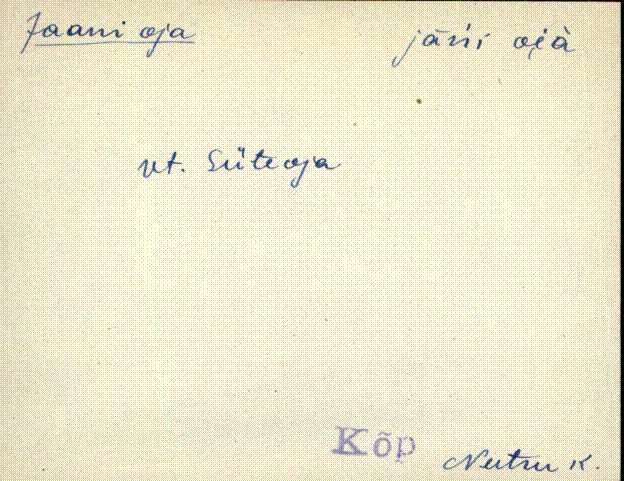 Jaani oja
jāńi oi̯à
vt. Süteoja
Kõp
Nutru K.